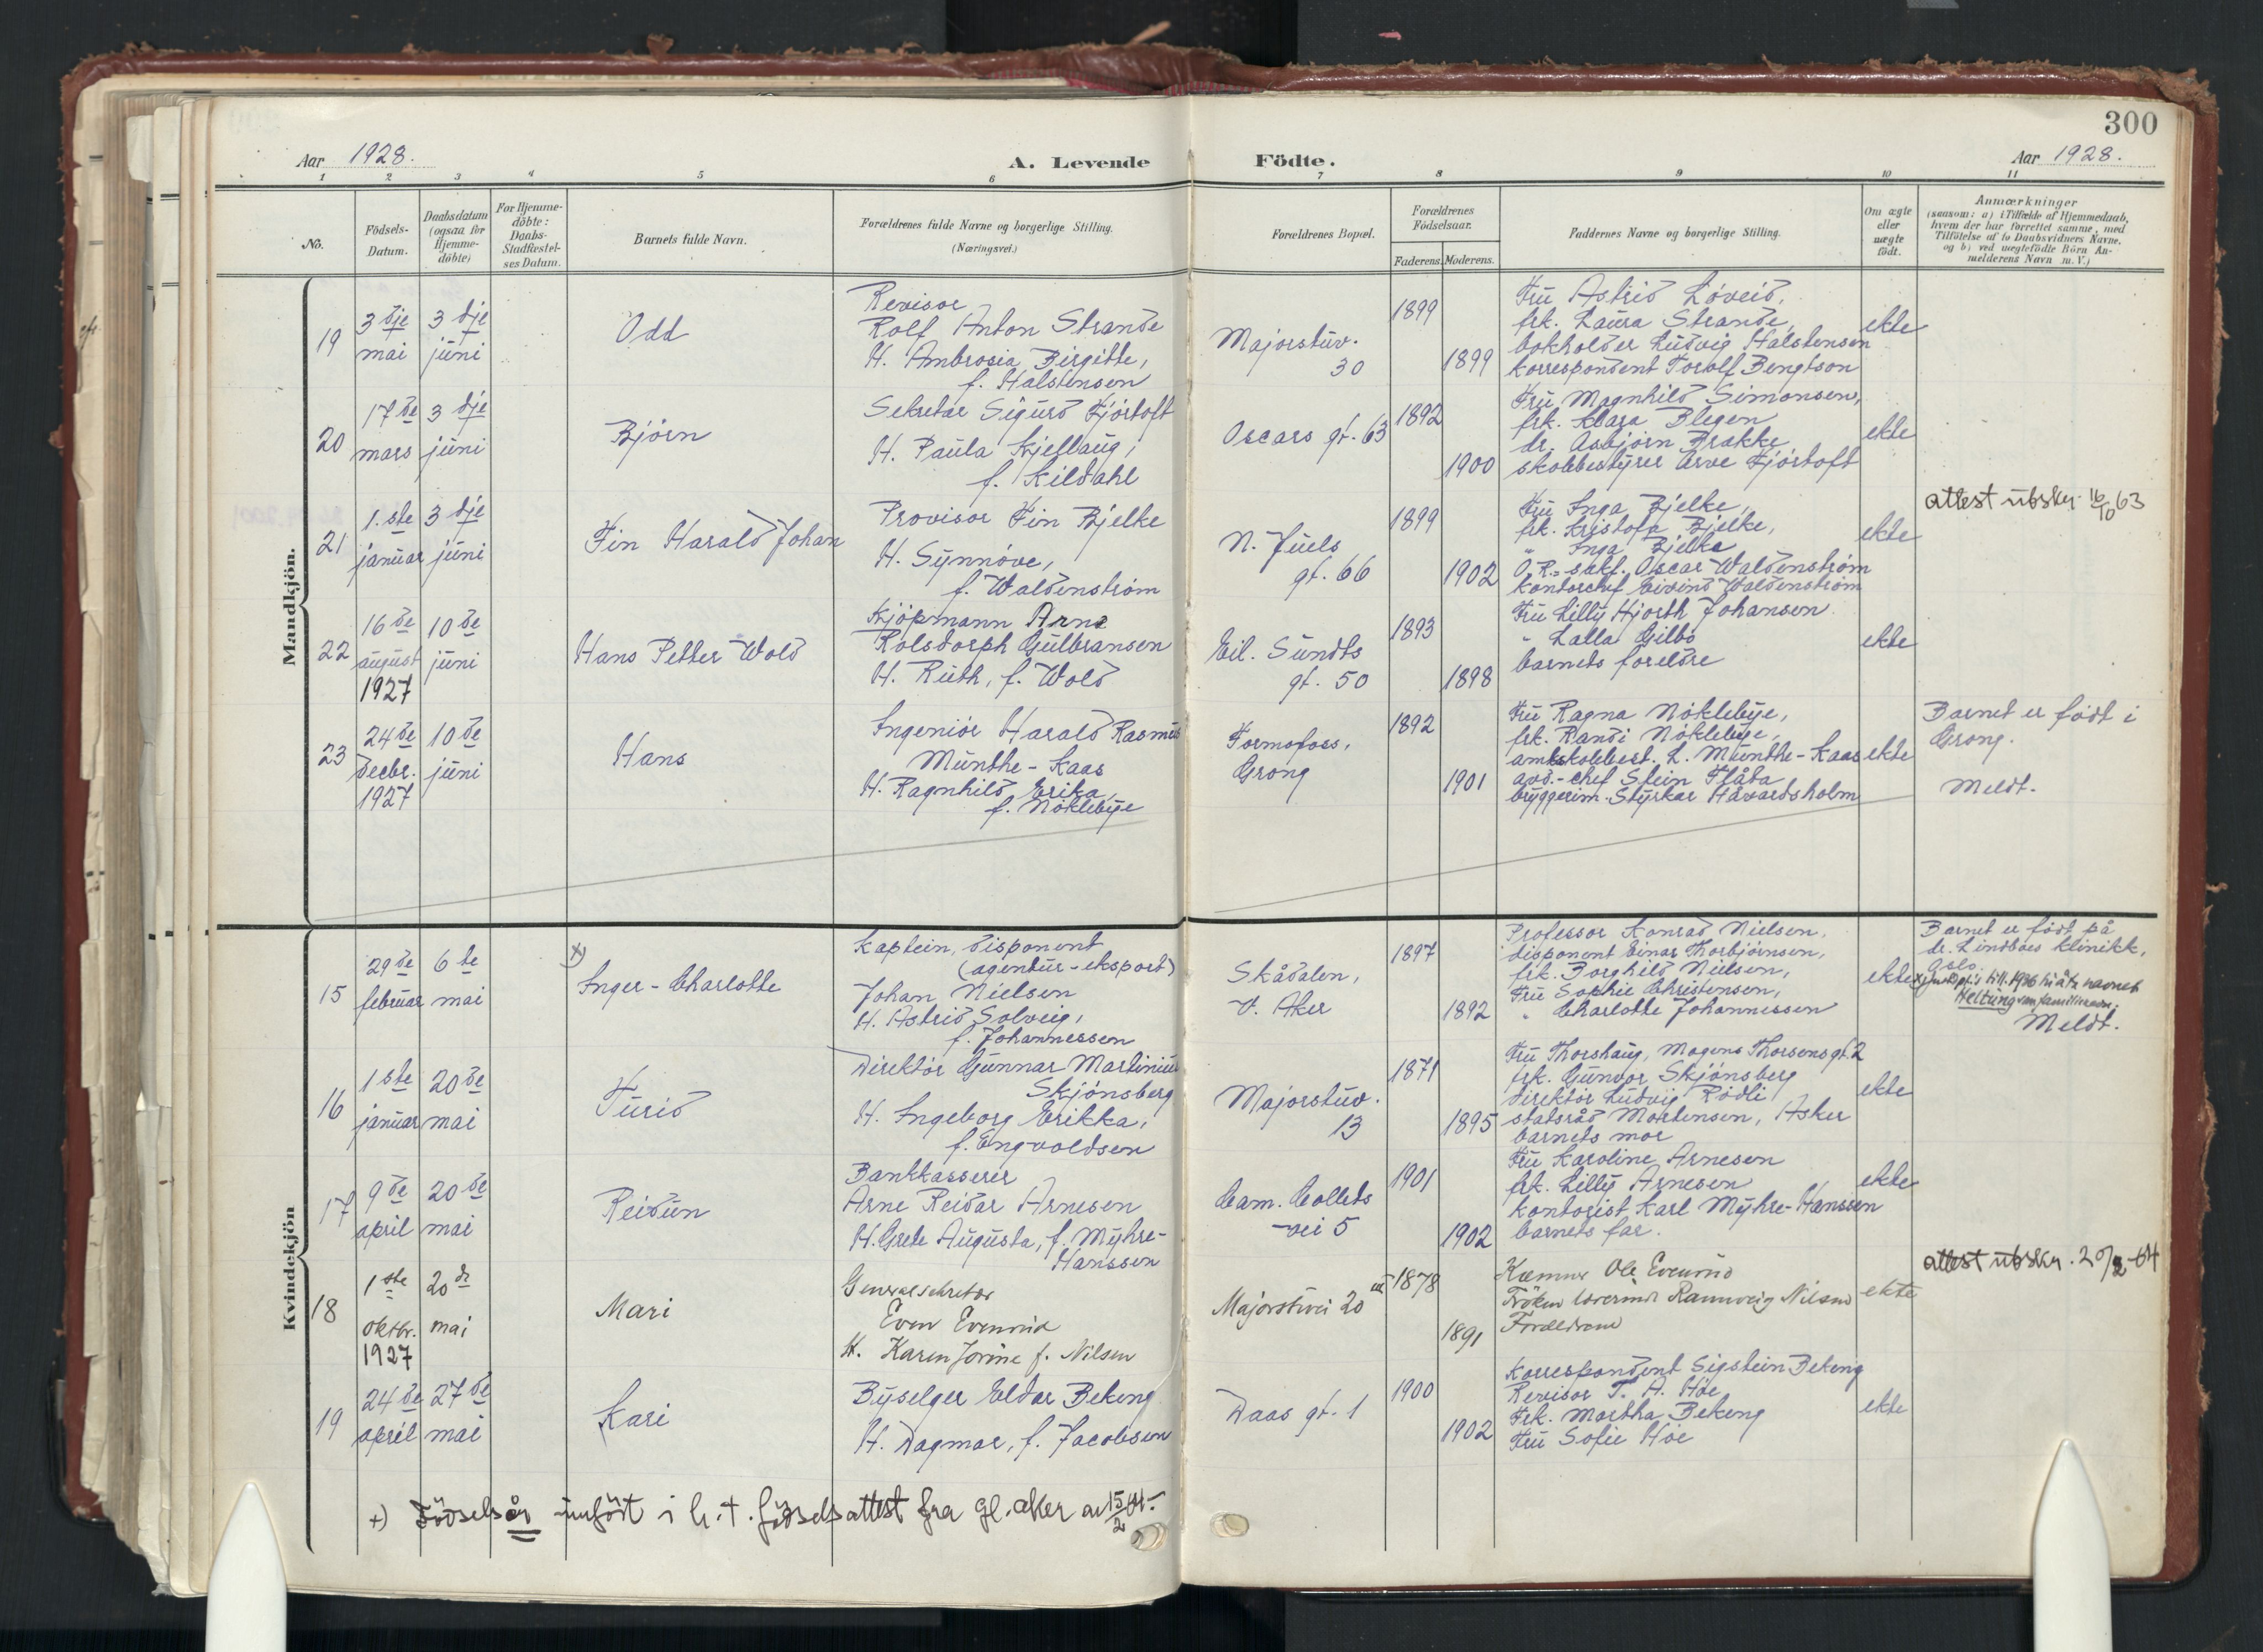 300
Aar 1928.
A. Levende
Födte.
Aar 1928.
1 2 3 4 5 6 7 8 9 10 11
No.
Födsels-
Datum.
Daabsdatum
(ogsaa for
Hjemme-
döbte)
For Hjemme-
döbte:
Daabs-
Stadfæstel-
ses Datum.
Barnets fulde Navn.
Forældrenes fulde Navne og borgerlige Stilling.
(Næringsvei.)
Forældrenes Bopæl.
Forældrenes
Födselsaar.
Faderens. Moderens.
Faddernes Navne og borgerlige Stilling.
Om ægte
eller
uægte
født.
Anmærkninger
(saasom: a) i Tilfælde af Hjemmedaab,
hvem der har forrettet samme, med
Tilföielse af to Daabsvidners Navne,
og b) ved uægtefödte Börn An-
melderens Navn m. V.)
Mandkjön.
19
3 dje
mai
3 dje
juni
Odd
Revisor
Rolf Anton Strande
H. Ambrosia Birgitte,
f. Halstensen
Majorstuv.
30
1899
1899
Fru Astrid Løveid,
frk. Laura Strande,
bokholder Ludvig Halstensen
korrespondent Torolf Bengtson
ekte
20
17 de
mars
3 dje
juni
Bjørn
Sekretær Sigurd Fjørtoft
H. Paula Kjellaug,
f. Kildahl
Oscars gt. 63
1892
1900
Fru Magnhild Simonsen,
frk. Klara Blegen
dr. Asbjørn Brakke
skolebestyrer Arve Fjørtoft
ekte
21
1. ste
januar
3 dje
juni
Fin Harald Johan
Provisor Fin Bjelke
H. Synnøve,
f. Waldenstrøm
N. Juels
gt. 66
1899
1902
Fru Inga Bjelke,
frk. Kristofa Bjelke,
" Inga Bjelke
O.R.-sakf. Oscar Waldenstrøm
kontorchef Eivind Waldenstrøm
ekte
attest utskr. 16/10 63
22
16 de
august
1927
10 de
juni
Hans Petter Wold
Kjøpmann Arne
Rolsdorph Gulbransen
H. Ruth, f. Wold
Eil. Sundts
gt. 50
1893
1898
Fru Lilly Hjorth Johansen
" Lalla Gilbo
barnets foreldre
ekte
23
24 de
decbr.
1927
10 de
juni
Hans
Ingeniør Harald Rasmus
Munthe-Kaas
H. Ragnhild Erika,
f. Nøklebye
Formofoss,
Grong
1892
1901
Fru Ragna Nøklebye,
frk. Randi Nøklebye,
amtskolebest. L. Munthe-Kaas
avd.-chef Stein Flåta
bryggerim. Styrkar Håvardsholm
ekte
Barnet er født i
Grong.
Meldt.
Kvindekjön
15
29 de
februar
6 te
mai
x)
Inger-Charlotte
Kaptein, disponent
(agentur-eksport)
Johan Nielsen
H. Astrid Solveig,
f. Johannessen
Skådalen,
V. Aker
1897
1892
Professor Konrad Nielsen,
disponent Einar Thorbjørnsen,
frk. Borghild Nielsen,
Fru Sophie Christensen,
" Charlotte Johannessen
ekte
Barnet er født på
dr. Lindboes klinikk,
Oslo.
till. 1936 navnet
Heltung som familienavn.
Meldt.
16
1 ste
januar
20 de
mai
Turid
Direktør Gunnar Martinius
Skjønsberg
H. Ingeborg Erikka,
f. Engvoldsen
Majorstuv.
13
1871
1895
Fru Thorshaug, Mogens Thorsens gt. 2
frk. Gunvor Skjønsberg
direktør Ludvig Rødli
statsråd Mortensen, Asker
barnets mor
ekte
17
9 de
april
20 de
mai
Reidun
Bankkasserer
Arne Reidar Arnesen
H. Grete Augusta, f. Myhre-
Hanssen
Cam. Colletts
vei 5
1901
1902
Fru Karoline Arnesen
frk. Lilly Arnesen
kontorist Karl Myhre-Hanssen
barnets far.
ekte
18
1 ste
oktbr.
1927
20 de
mai
Mari
Generalsekretær
Even Evenrud
H. Karen Jorine f. Nilsen
Majorstuvei 20
1878
1891
Kæmner Ole Evenrud
Frøken lærerinde Rannveig Nilsen
Forældrene
ekte
attest utskr. 20/2-64
19
24 de
april
27 de
mai
Kari
Byselger Eldar Bekeng
H. Dagmar, f. Jacobsen
Daas gt. 1
1900
1902
Korrespondent Sigstein Bekeng
Revisor T. A. Høe
Frk. Martha Bekeng
Fru Sofie Høe
ekte
+) Fødselsår innført i h.t. fødselsattest fra gl. aker av 15/2 64.-